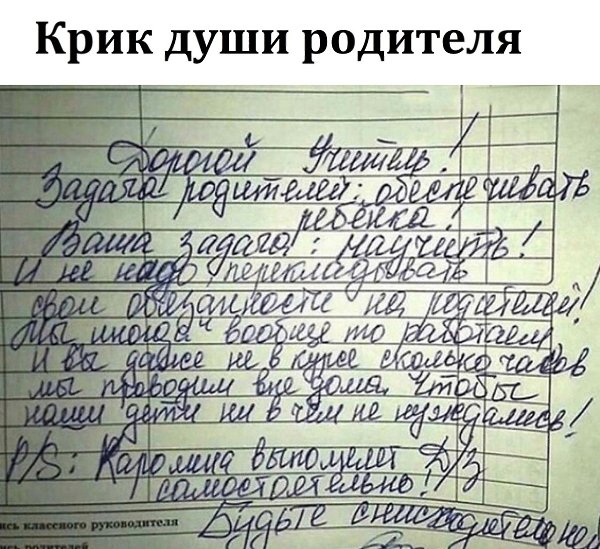 Крик души родителя
Дорогой Учитель!
Задача родителей: обеспечивать
ребёнка!
Ваша задача: научить!
И не надо перекладывать
свои обязанности на родителей!
Мы иногда вообще то работаем
И вы даже не в курсе сколько часов
мы проводим вне дома, чтобы
наши дети ни в чём не нуждались!
P/S: Каролина выполняет Д/З
самостоятельно!
Будьте снисходительно
ись классного руководителя
родителей